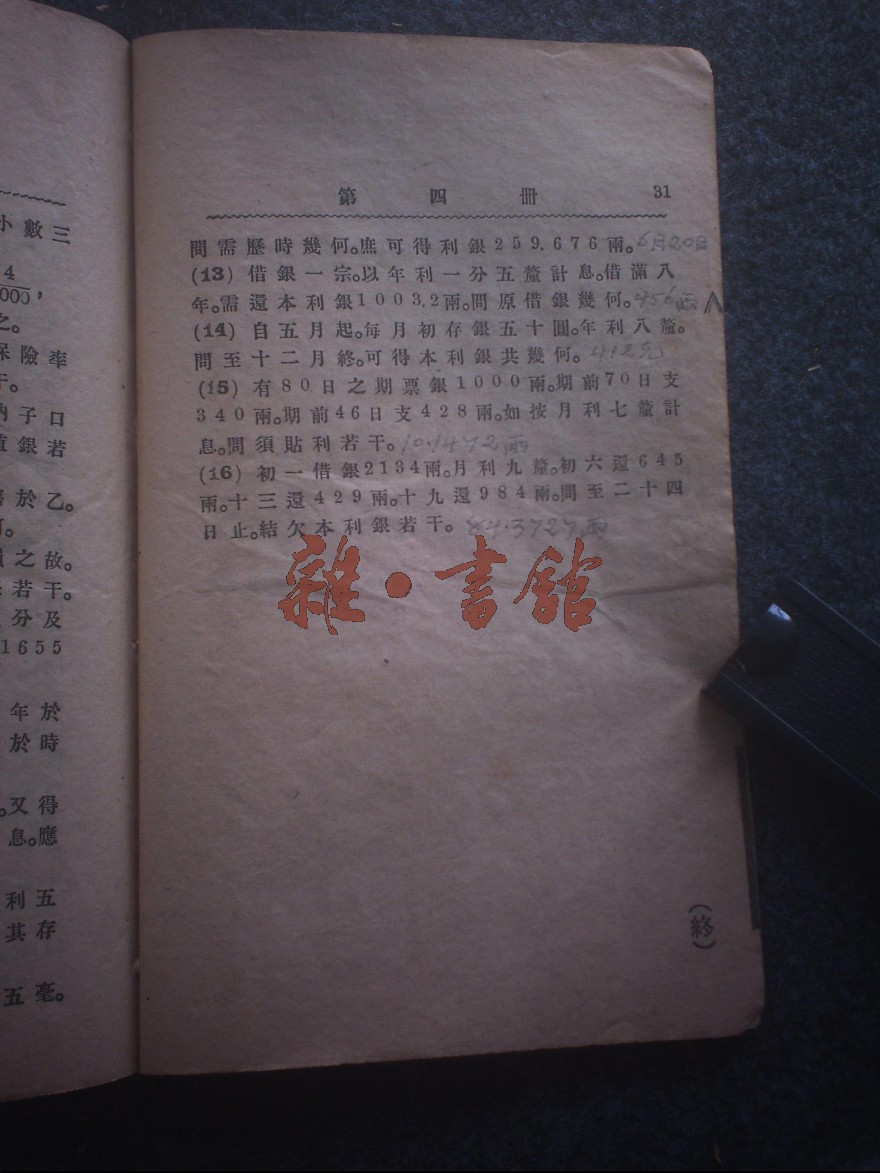 小數三
4
000,
之。
保險率
干。
納子口
銀若
於乙。
何。
之故。
若干。
分及
1655
年於
於時
。又得
息。應
利五
其存
五毫。
第四冊 31
問需歷時幾何。庶可得利銀259.676兩。6月20日
(13) 借銀一宗。以年利一分五釐計息。借滿八
年。需還本利銀1003.2兩。問原借銀幾何。456兩
(14) 自五月起。每月初存銀五十圓。年利八釐。
問至十二月終。可得本利銀共幾何。412元
(15) 有80日之期票銀1000兩。期前70日支
340兩。期前46日支428兩。如按月利七釐計
息。問須貼利若干。10.1472兩
(16) 初一借銀2134兩。月利九釐。初六還645
兩。十三還429兩。十九還984兩。問至二十四
日止。結欠本利銀若干。84.3727兩
雜·書館
(終)